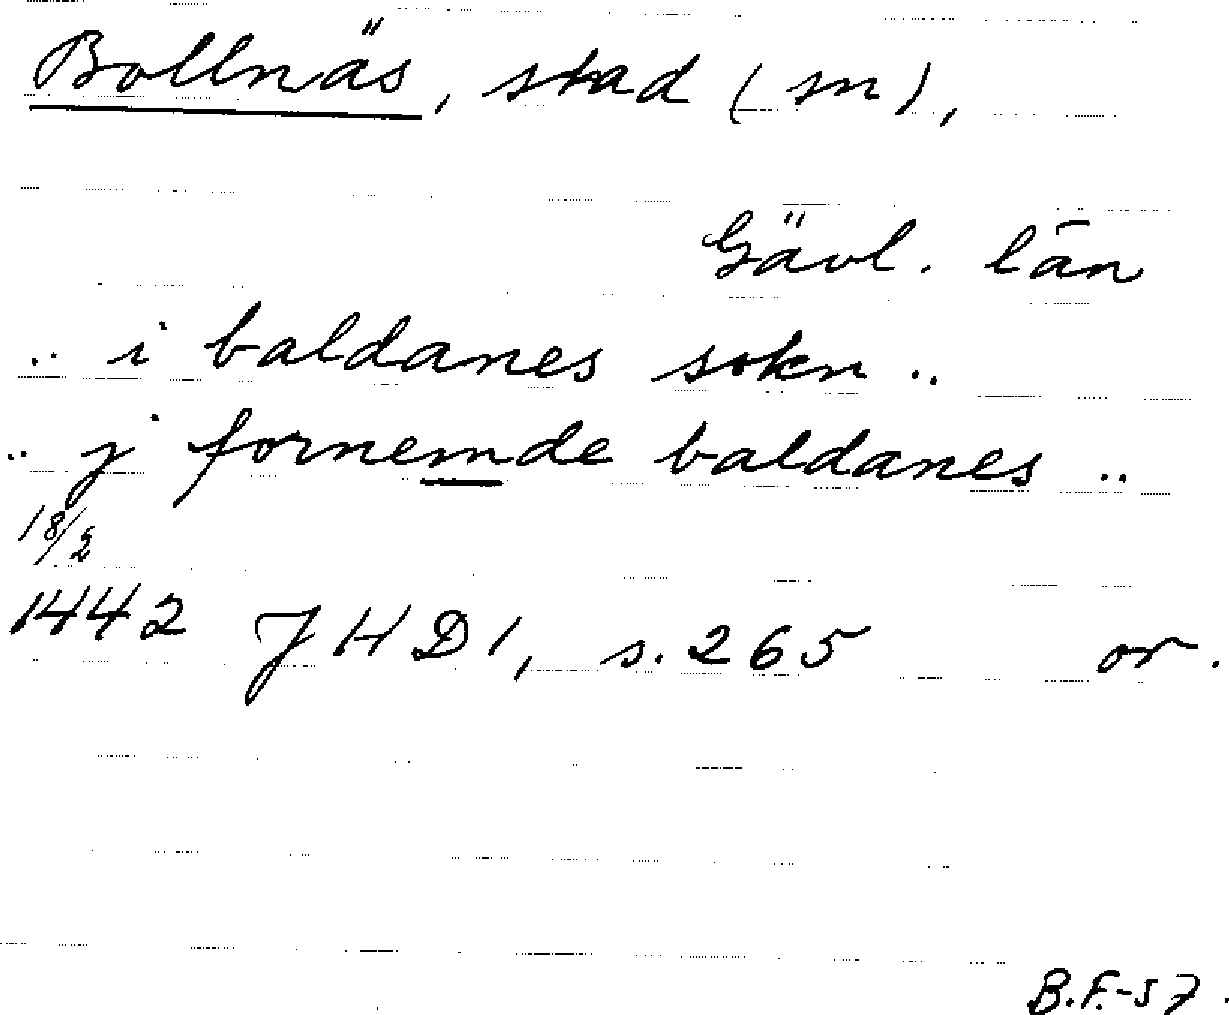 Bollnäs, stad (sn),
Gävl. län
.. i baldanes sokn ..
.. j fornemde baldanes ..
18/2
1442 JHD 1, s. 265 or.
B.F.-57.